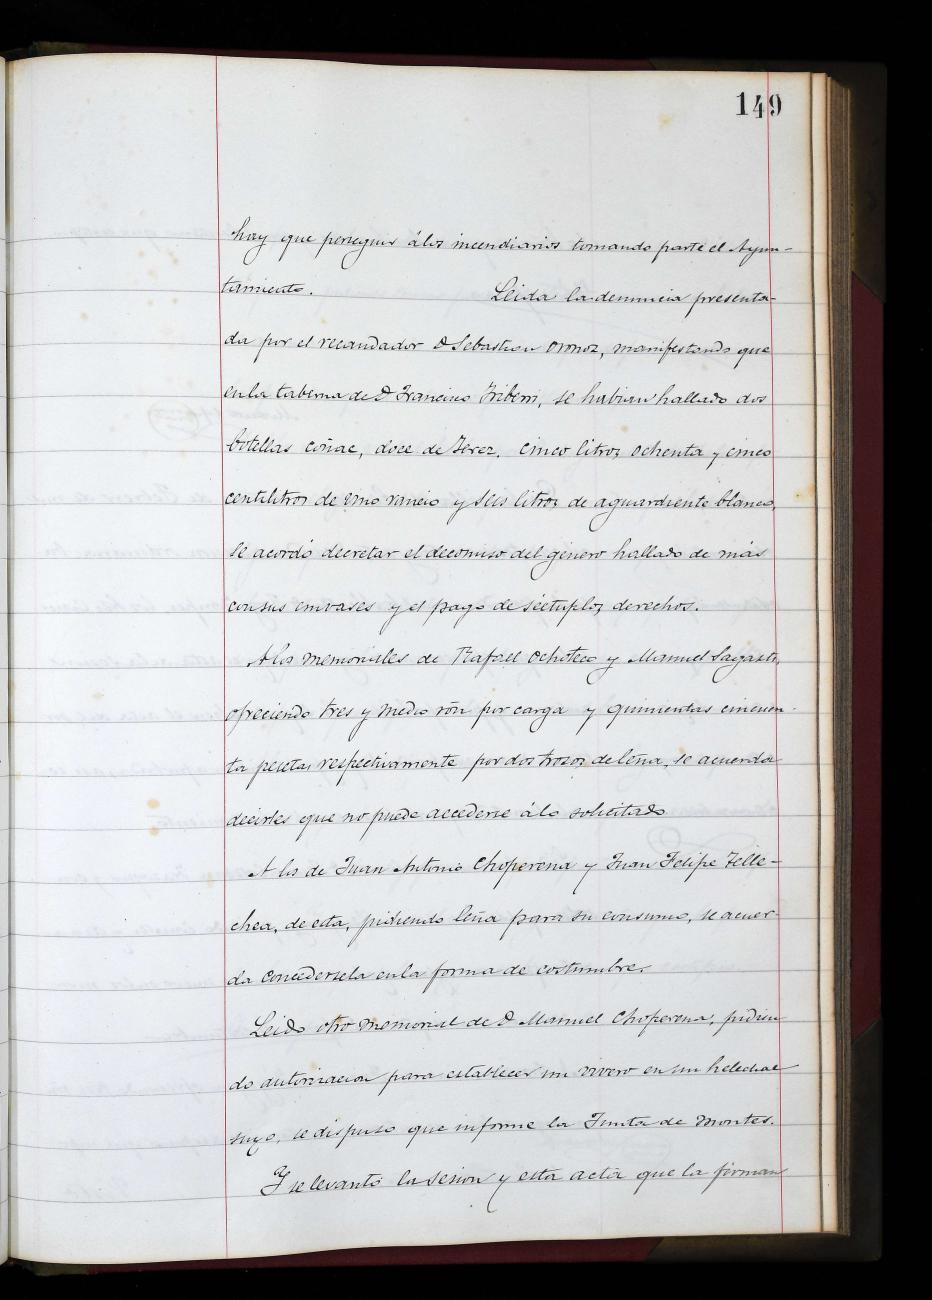 149
hay que perseguir á los incendiarios tomando parte el Ayun-
tamiento. Leida la denuncia presenta-
da por el recaudador D Sebastian Oronoz, manifestando que
en la taberna de D Francisco Iriberri, se habian hallado dos
botellas coñac, doce de Jerez, cinco litros ochenta y cinco
centilitros de vino rancio y seis litros de aguardiente blanco,
se acordó decretar el decomiso del género hallado de más
con sus envases y el pago de séctuplos derechos.
A los memoriales de Rafael Ochoteco y Manuel Sagasti,
ofreciendo tres y medio rón por carga y quinientas cincuen-
ta pesetas respectivamente por dos trozos de leña, se acuerda
decirles que no puede accederse á lo solicitado
A los de Juan Antonio Choperena y Juan Felipe Telle-
chea, de esta, pidiendo leña para su consumo, se acuer-
da concedersela en la forma de costumbre.
Leido otro memorial de D Manuel Choperena, pidien
do autorizacion para establecer un vivero en un helechal
suyo, se dispuso que informe la Junta de Montes.
Y se levantó la sesion y esta acta que la firman